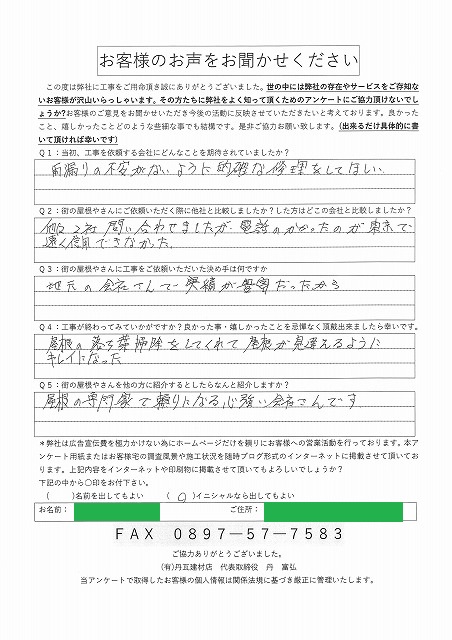 お客様のお声をお聞かせください
この度は弊社に工事をご用命頂き誠にありがとうございました。世の中には弊社の存在やサービスをご存知な
いお客様が沢山いらっしゃいます。その方たちに弊社をよく知って頂くためのアンケートにご協力頂けないでし
ょうか?お客様のご意見をお聞かせいただき今後の活動に反映させていただきたいと考えております。良かった
こと、嬉しかったことどのような些細な事でも結構です。是非ご協力お願い致します。(出来るだけ具体的に書
いて頂ければ幸いです)
Q1:当初、工事を依頼する会社にどんなことを期待されていましたか?
雨漏りの不安がないように的確な修理をしてほしい
Q2:街の屋根やさんにご依頼いただく際に他社と比較しましたか?した方はどこの会社と比較しましたか?
他2社問い合わせましたが、電話のかかったのが東京で
遠く信用できなかった。
Q3:街の屋根やさんに工事をご依頼いただいた決め手は何ですか
地元の会社さんで実績が豊富だったから
Q4:工事が終わってみていかがですか?良かった事・嬉しかったことを忌憚なく頂戴出来ましたら幸いです。
屋根の落ち葉掃除をしてくれて屋根が見違えるように
キレイになった
Q5:街の屋根やさんを他の方に紹介するとしたらなんと紹介しますか?
屋根の専門家で頼りになる心強い会社さんです
*弊社は広告宣伝費を極力かけない為にホームページだけを頼りにお客様への営業活動を行っております。本ア
ンケート用紙またはお客様宅の調査風景や施工状況を随時ブログ形式のインターネットに掲載させて頂いてお
ります。上記内容をインターネットや印刷物に掲載させて頂いてもよろしいでしょうか?
下記の中から〇印をお付下さい。
( )名前を出してもよい (○)イニシャルなら出してもよい
お名前: ご住所:
FAX 0897-57-7583
ご協力ありがとうございました。
(有)丹瓦建材店 代表取締役 丹 富弘
当アンケートで取得したお客様の個人情報は関係法規に基づき厳正に管理いたします。